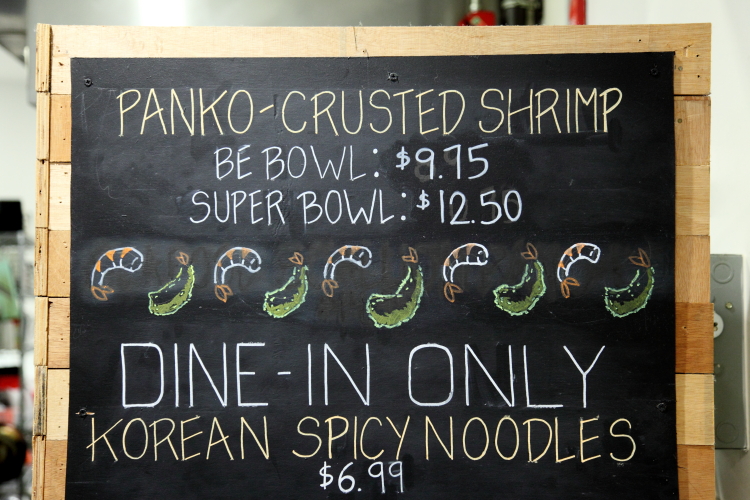 PANKO-CRUSTED SHRIMP
BÉ BOWL: $9.75
SUPER BOWL: $12.50
DINE-IN ONLY
KOREAN SPICY NOODLES
$6.99